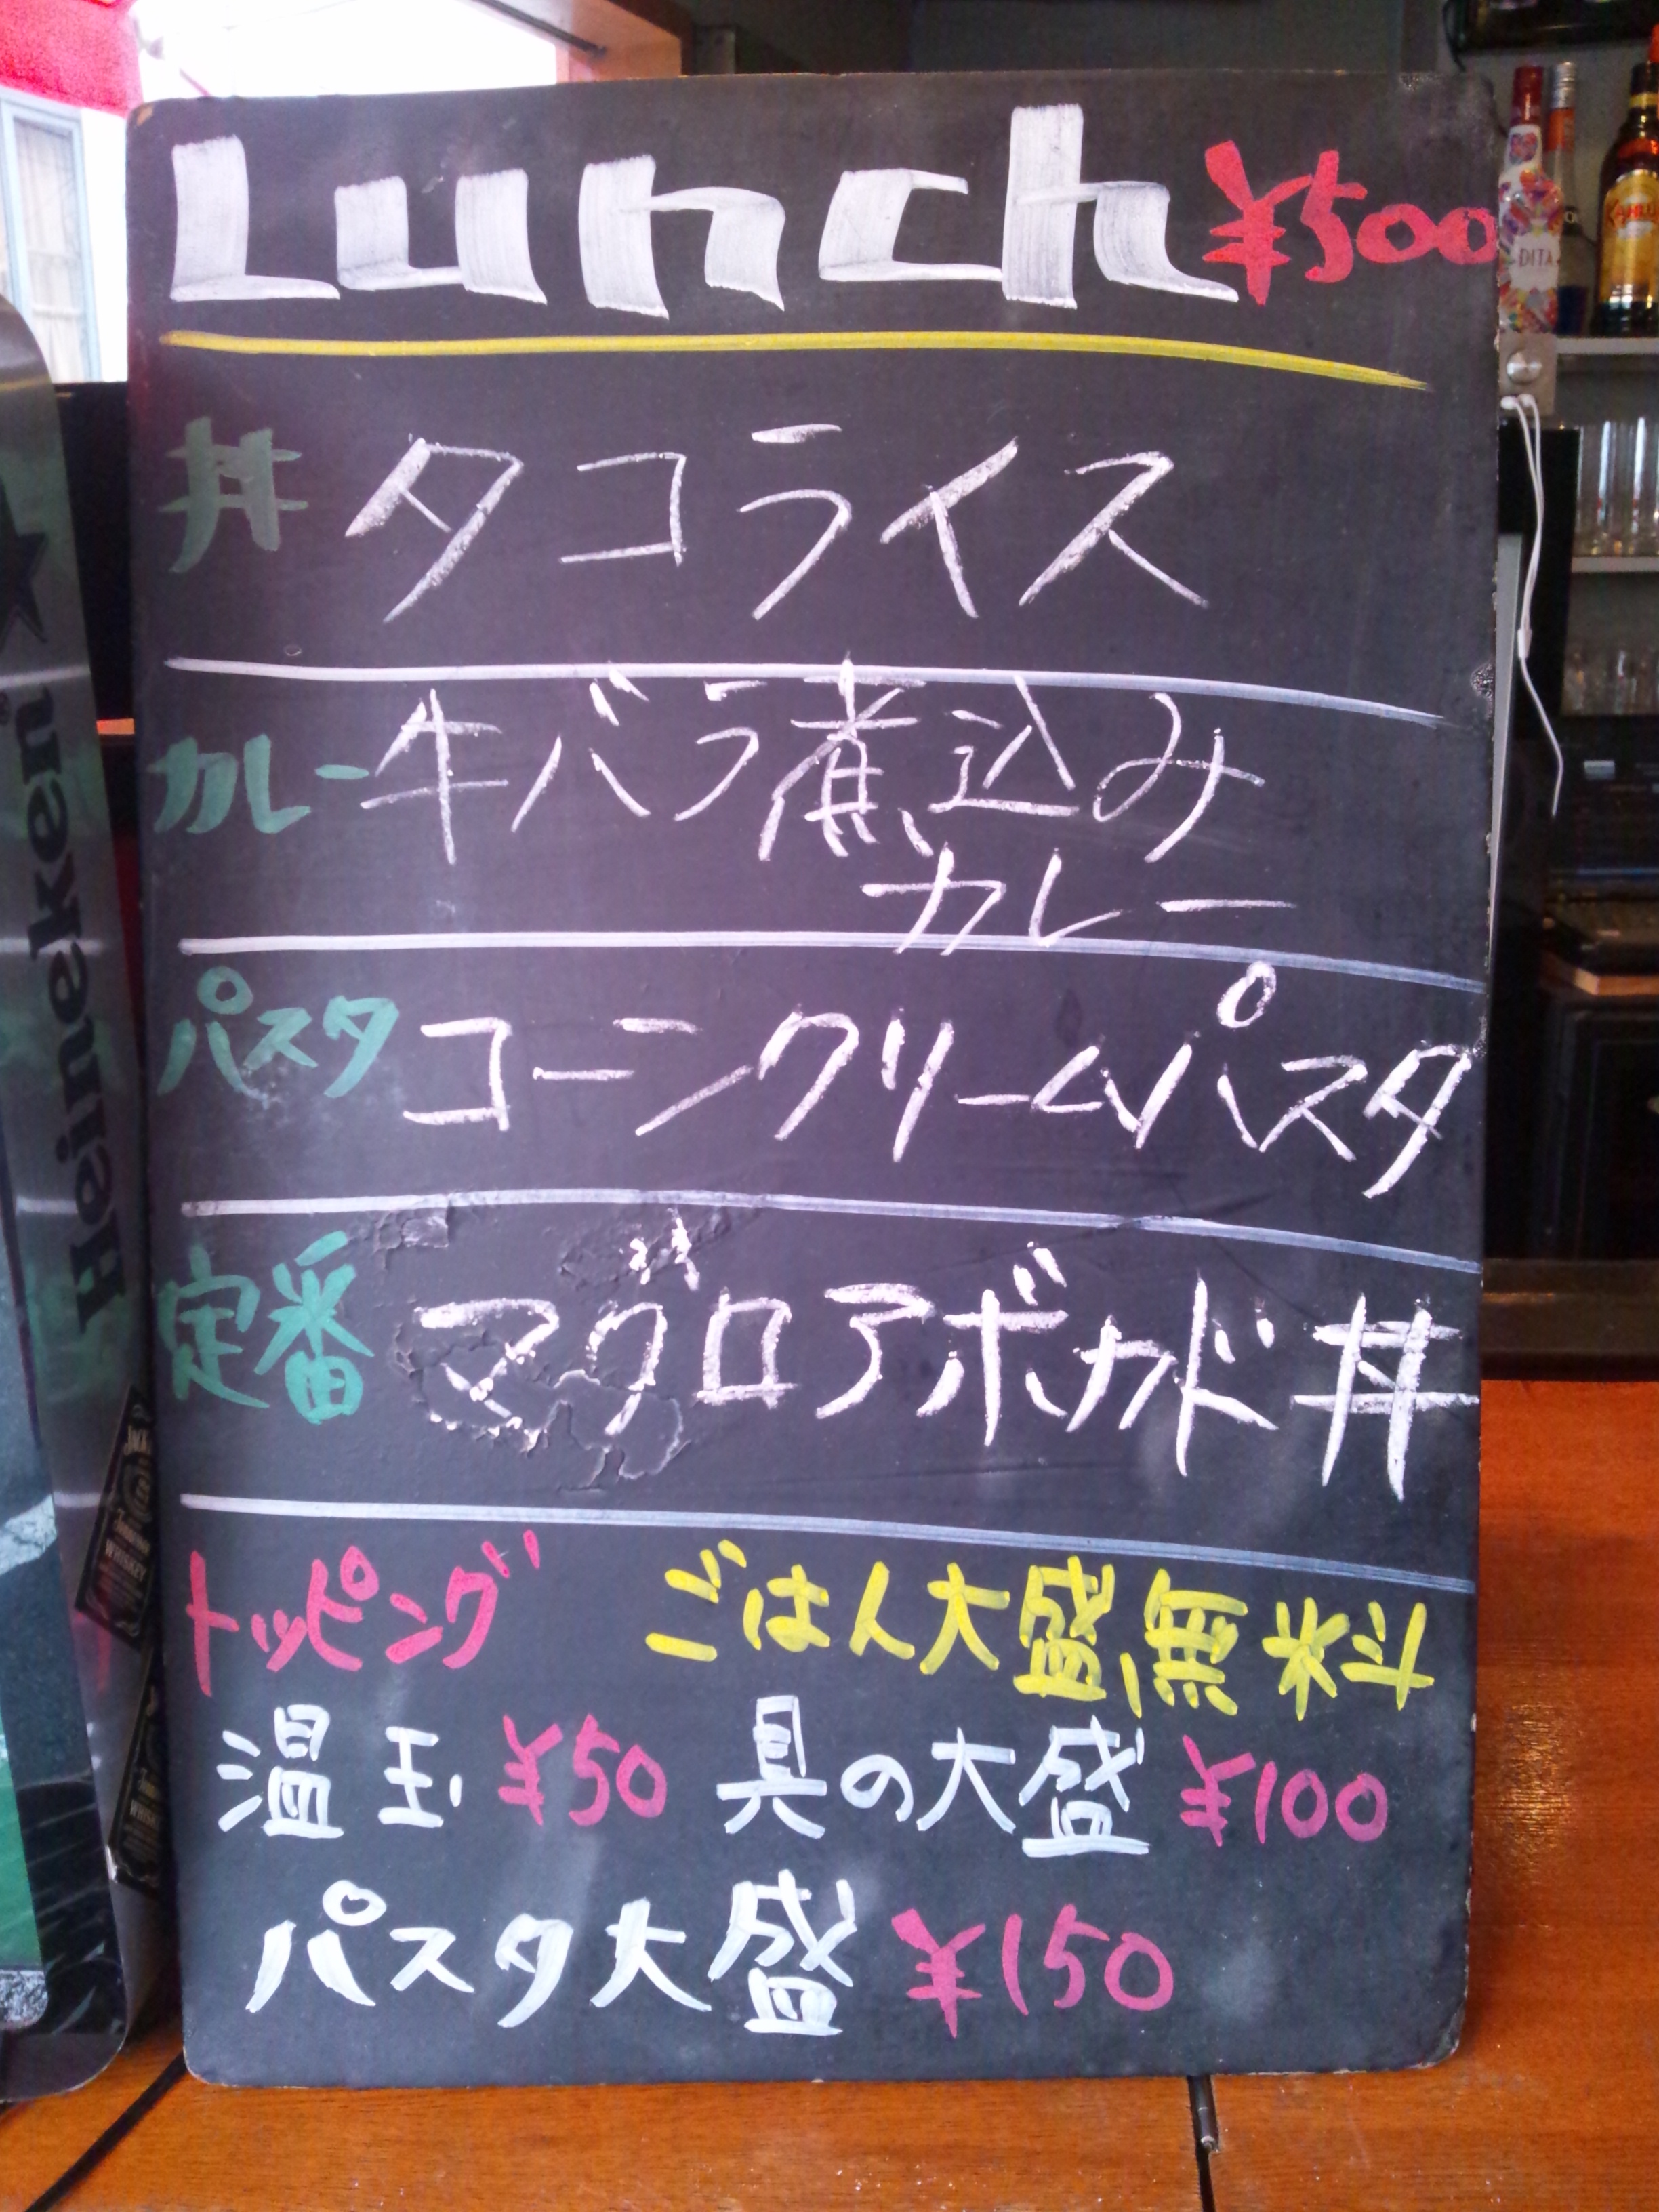 Lunch ¥500
丼 タコライス
カレー 牛バラ煮込み
カレー
パスタ コーンクリームパスタ
定番 マグロアボカド丼
トッピング ごはん大盛無料
温玉 ¥50 具の大盛 ¥100
パスタ大盛 ¥150
Heineken
DITA
KAHLÚA
WHISKEY